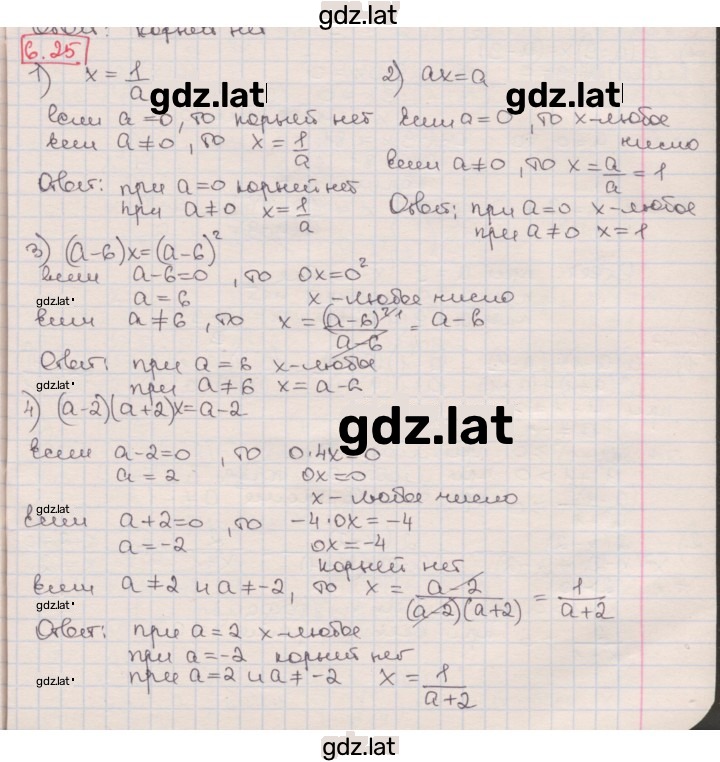 gdz.lat
Ответ: корней нет
6.25
1) x = 1/a
gdz.lat
если a = 0, то корней нет
если a ≠ 0, то x = 1/a
Ответ: при a = 0 корней нет
при a ≠ 0 x = 1/a
2) ax = a
gdz.lat
если a = 0, то x - любое
число
если a ≠ 0, то x = a/a = 1
Ответ: при a = 0 x - любое
при a ≠ 0 x = 1
3) (a-6)x = (a-6)²
если a-6=0, то 0x=0²
gdz.lat
a = 6 x - любое число
если a ≠ 6, то x = (a-6)²/a-6 = a-6
Ответ: при a = 6 x - любое
gdz.lat
при a ≠ 6 x = a-6
4) (a-2)(a+2)x = a-2
gdz.lat
если a-2=0, то 0·4x=0
a = 2 0x=0
x - любое число
gdz.lat
если a+2=0, то -4·0x = -4
a = -2 0x = -4
корней нет
если a ≠ 2 и a ≠ -2, то x = a-2/(a-2)(a+2) = 1/a+2
gdz.lat
Ответ: при a = 2 x - любое
при a = -2 корней нет
gdz.lat
при a = 2 и a ≠ -2 x = 1/a+2
gdz.lat